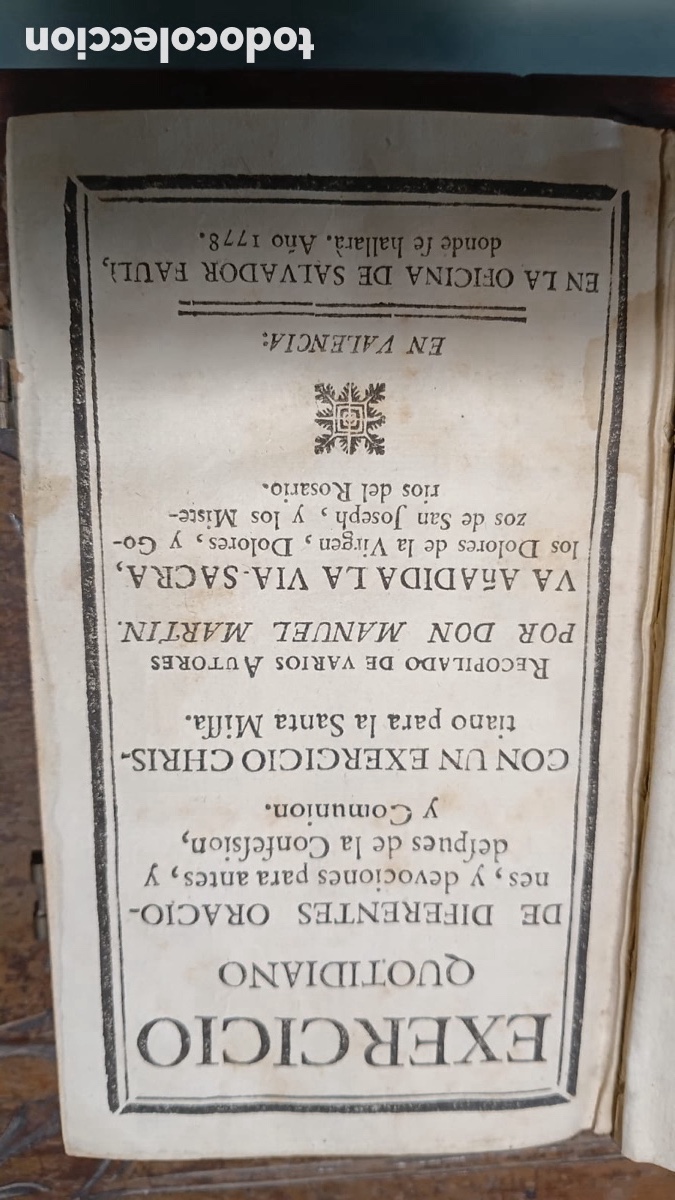 EXERCICIO
QUOTIDIANO
DE DIFERENTES ORACIO-
nes, y devociones para antes, y
deſpues de la Confeſsion,
y Comunion.
CON UN EXERCICIO CHRIS-
tiano para la Santa Miſſa.
RECOPILADO DE VARIOS AUTORES
POR DON MANUEL MARTIN.
VA AñADIDA LA VIA-SACRA,
los Dolores de la Virgen, Dolores, y Go-
zos de San Joseph, y los Miste-
rios del Rosario.
EN VALENCIA:
EN LA OFICINA DE SALVADOR FAULÌ,
donde ſe hallarà. Año 1778.
todocoleccion